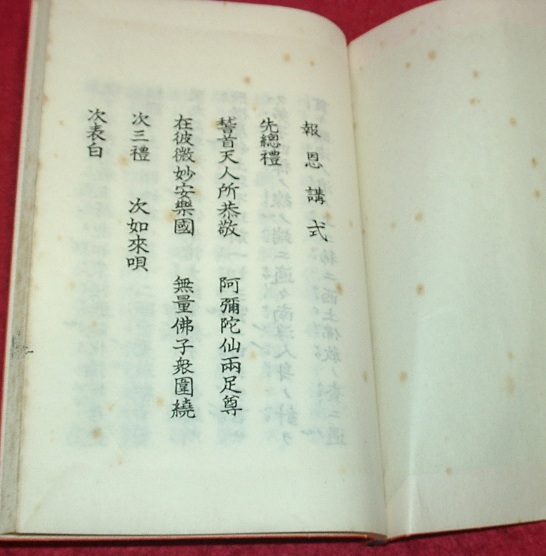 報恩講式
先總禮
稽首天人所恭敬　阿彌陀仙兩足尊
在彼微妙安樂國　無量佛子衆圍繞
次三禮　次如來唄
次表白